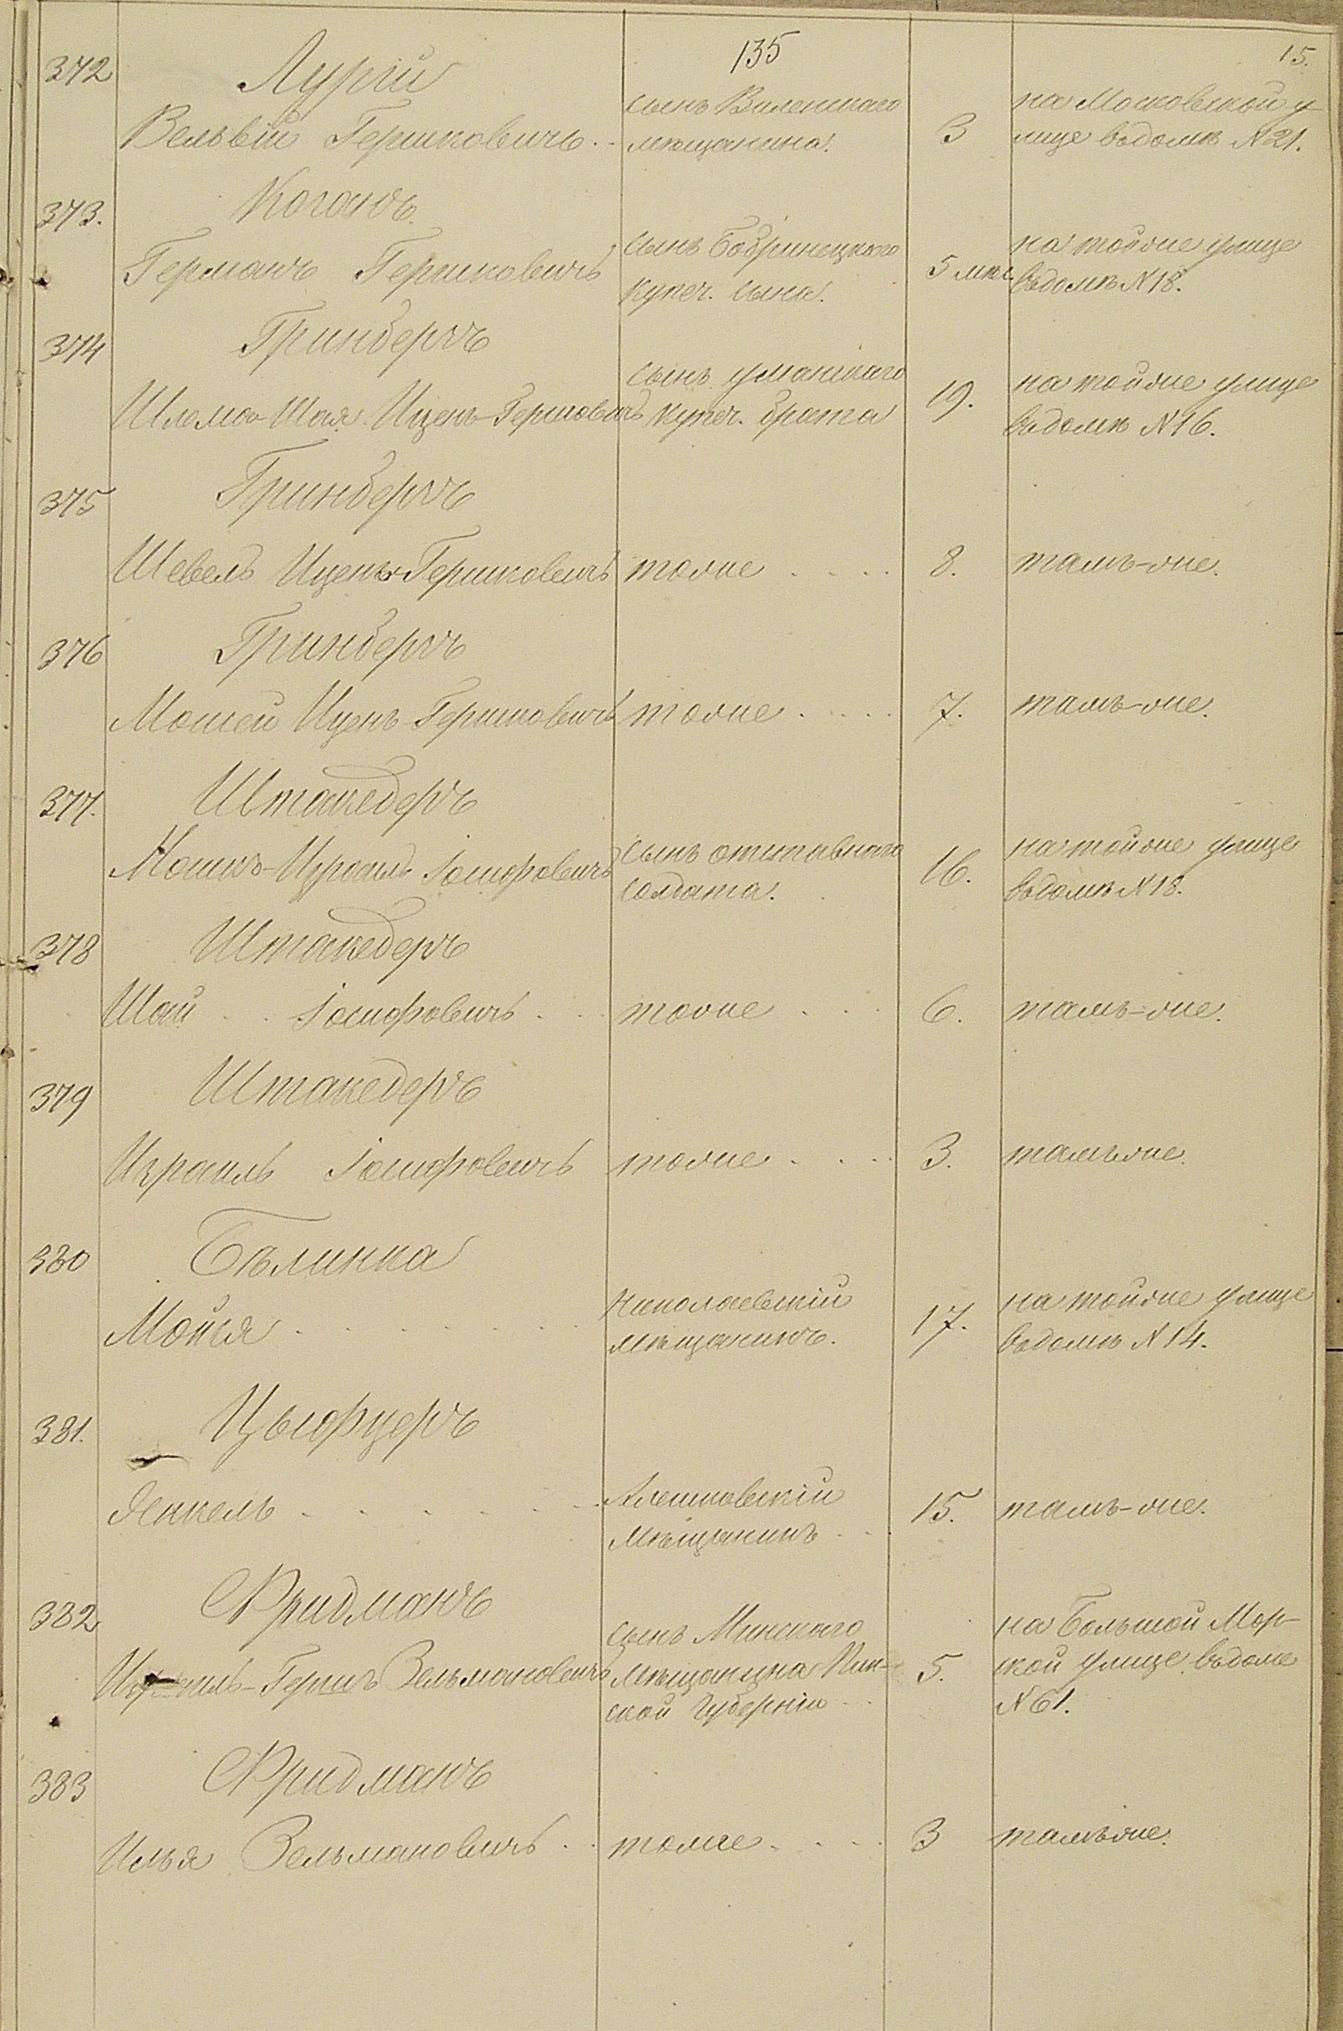 135
15.
372
Лургй
Вельвій Гершковичъ
сынъ Виленскаго
мѣщанина.
3
на Московской у
лице въ домѣ №21.
373.
Коганъ
Германъ Гершковичъ
сынъ Бобринецкаго
купеч. сына.
5 мѣс.
на той же улице
въ домѣ №18.
374
Гринбергъ
Шлема-Шая Ицекъ-Гершковичъ
сынъ уманскаго
купеч. брата
19.
на той же улице
въ домѣ №16.
375
Гринбергъ
Шевель Ицекъ-Гершковичъ
тоже
8.
тамъ-же.
376
Гринбергъ
Мошей Ицекъ-Гершковичъ
тоже
7.
тамъ-же.
377.
Штакедеръ
Мошко-Израиль Іосифовичъ
сынъ отставнаго
солдата.
16.
на той же улице
въ домѣ №18.
378
Штакедеръ
Шай Іосифовичъ
тоже
6.
тамъ-же.
379
Штакедеръ
Израиль Іосифовичъ
тоже
3.
тамъ же.
380
Бѣлинка
Мойся
Николаевскій
мѣщанинъ.
17.
на той же улице
въ домѣ №14.
381.
Цыферъ
Янкель
Алешковскій
мѣщанинъ
15.
тамъ-же.
382
Фридманъ
Израиль-Гершъ Зельмановичъ
сынъ Минскаго
мѣщанина Мин-
ской губерніи
5.
на Большой Мор-
ской улице въ доме
№61.
383
Фридманъ
Илья Зельмановичъ
тоже
3
тамъ же.